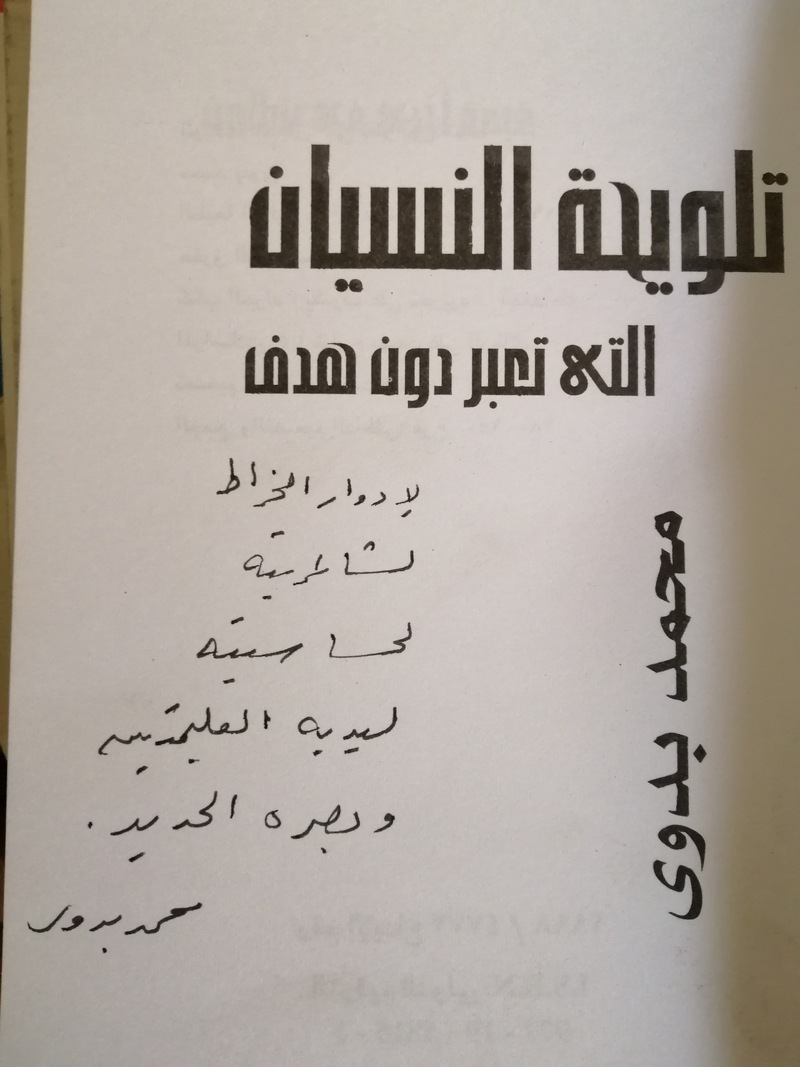 تلويحة النسيان
التى تعبر دون هدف
محمد بدوى
لإدوار الخراط
لشاعريته
لحساسيته
ليديه العليمتين
وبصره الحديد.
محمد بدوى